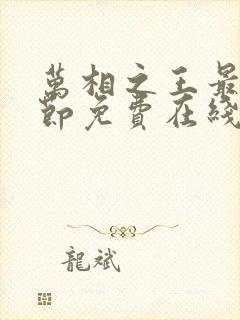 萬相之王最
節免費在綫
龍斌